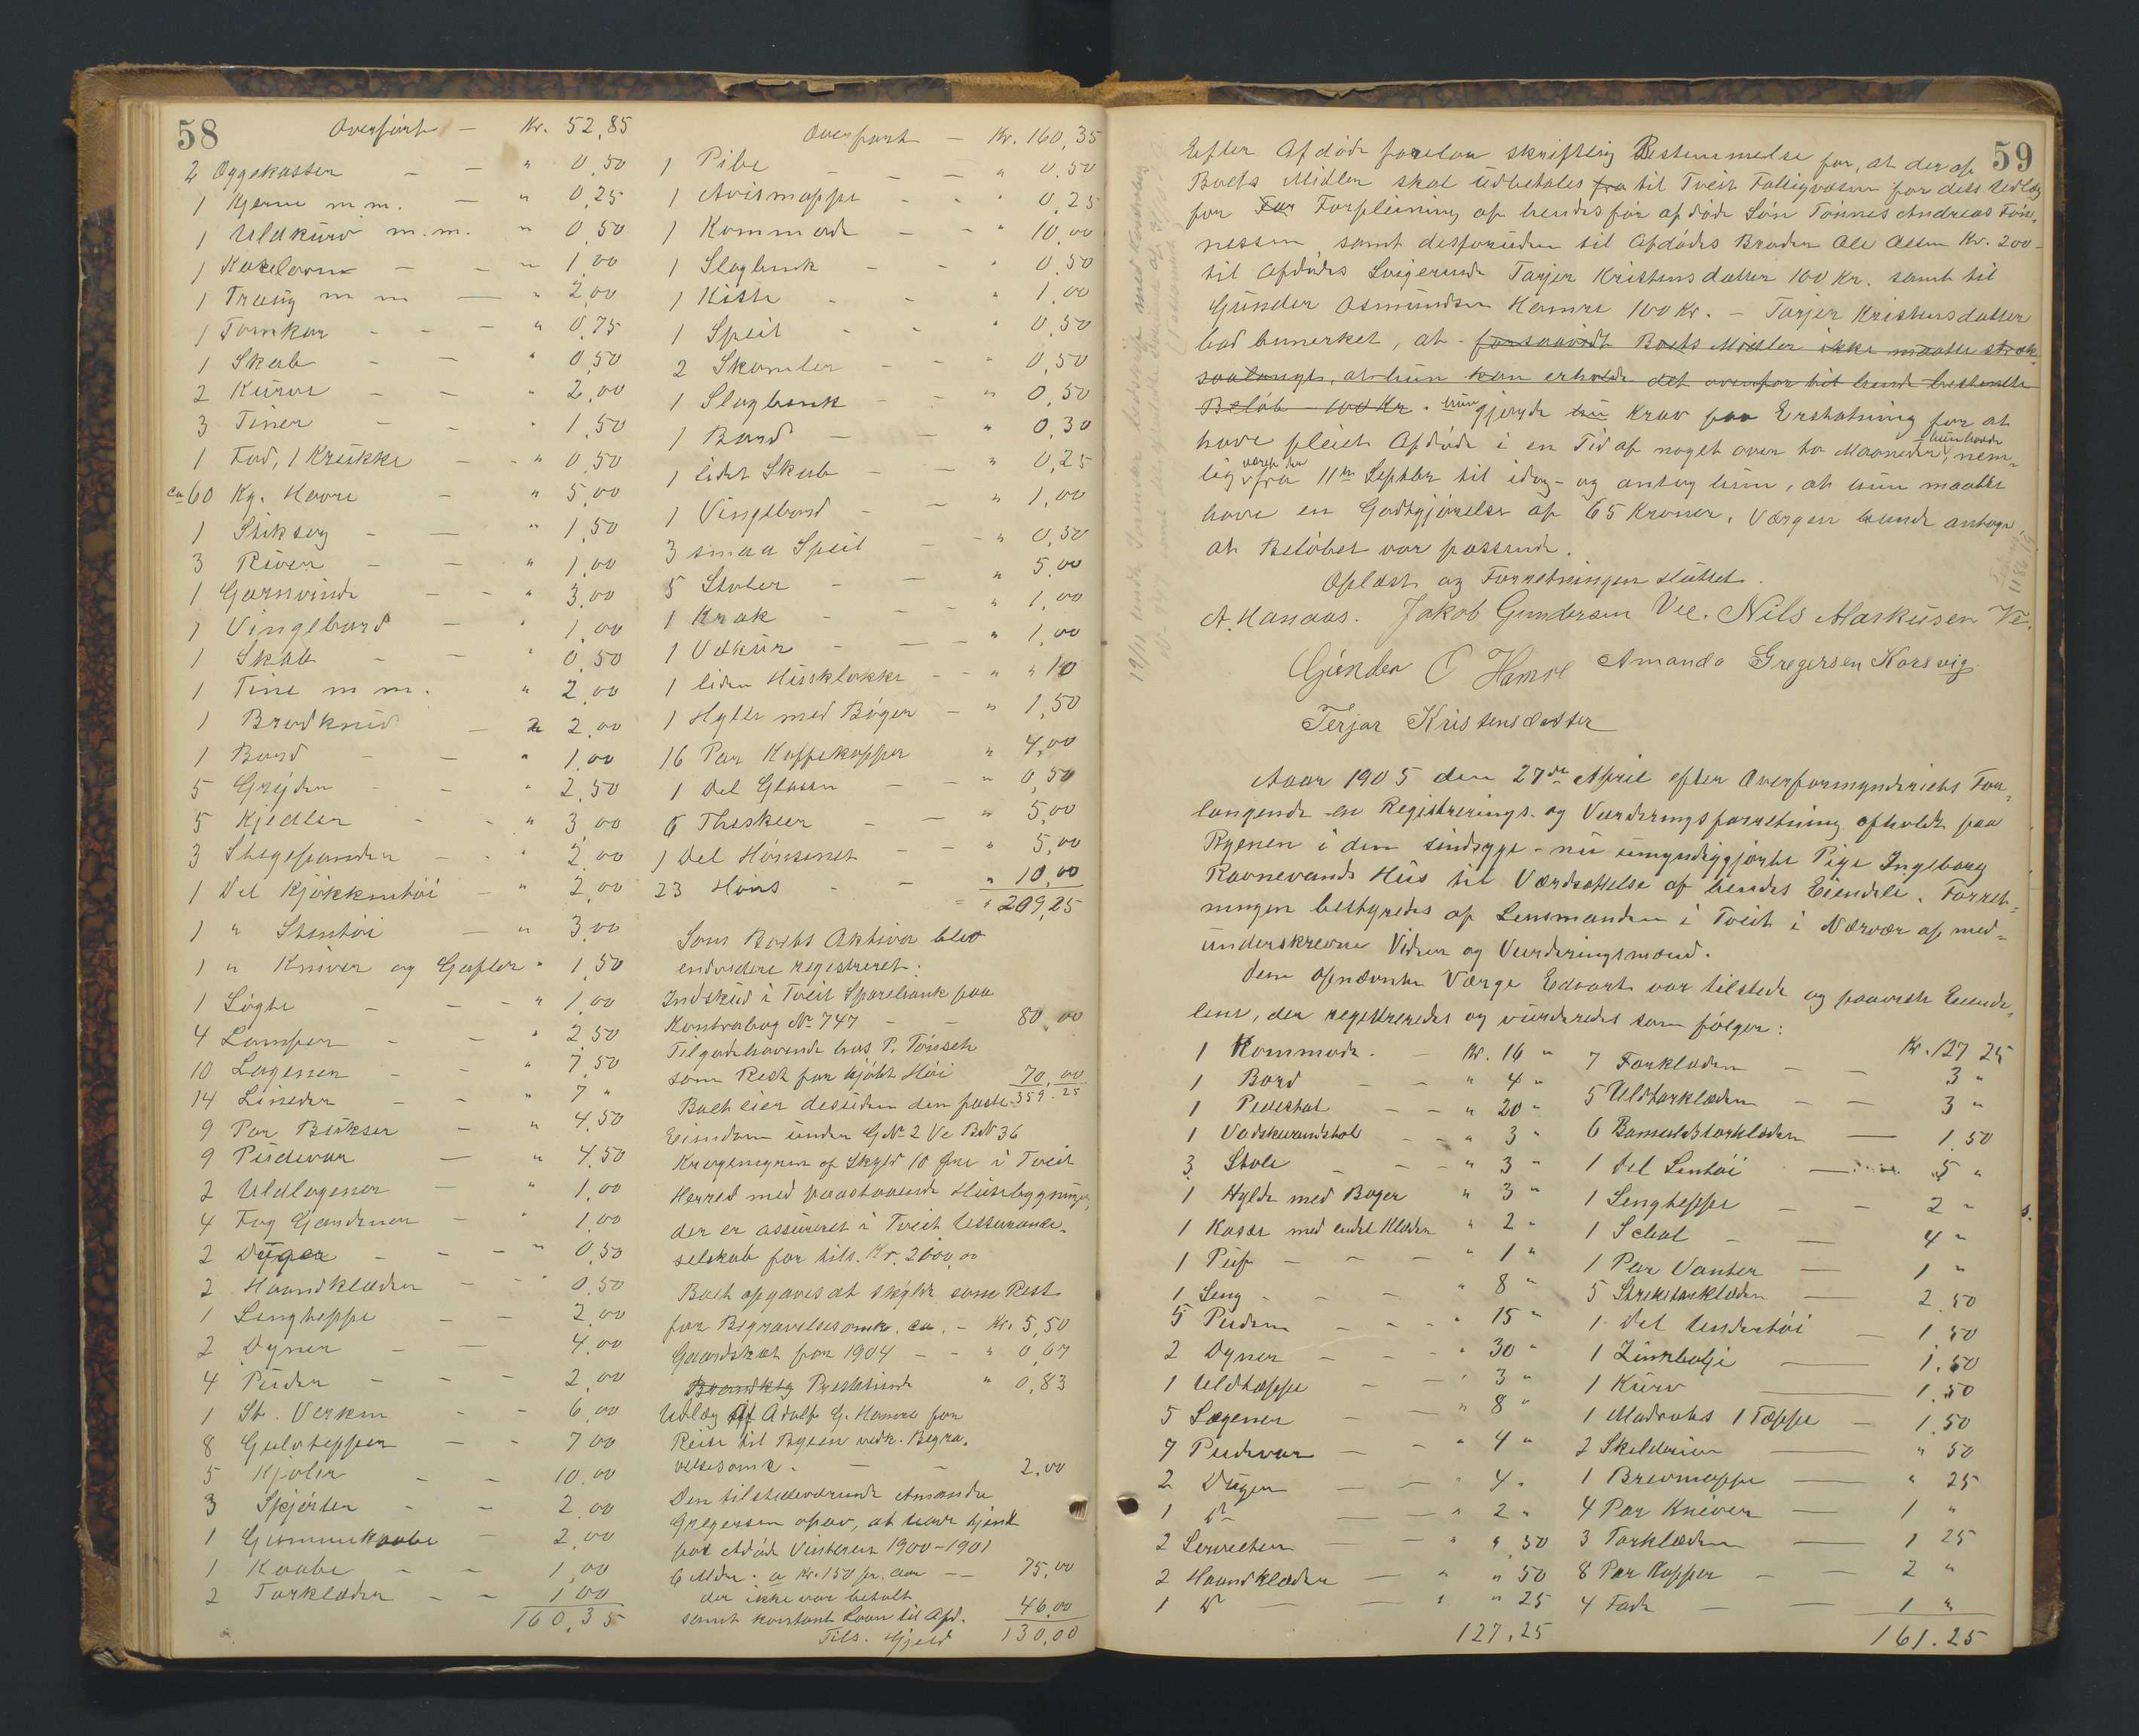 58
Overført — Kr. 52,85
2 Æggekasser — — " 0,50
1 Kjerne m.m. — " 0,25
1 Uldkurv m.m. " 0,50
1 Kakelovn — — " 1,00
1 Traug m m — " 2,00
1 Tomkar - - - " 0,75
1 Skab - - " 0,50
2 Kurve - - " 2,00
3 Tiner - - " 1,50
1 Fad, 1 Krukke - - " 0,50
ca 60 Kg. Havre - " 5,00
1 Stiksag - — " 1,50
3 River - — " 1,00
1 Garnvinde - - " 3,00
1 Vingebord - " 1,00
1 Skab - - " 0,50
1 Tine m m. " 2,00
1 Brødkniv — 2,00
1 Bord - — " 1,00
5 Gryder - - " 2,50
5 Kjedler - - " 3,00
3 Stegepander - - " 2,00
1 Del Kjøkkentøi - " 2,00
1 " Stentøi — " 3,00
1 " Kniver og Gafler " 1,50
1 Løgte - - - " 1,00
4 Lamper - — " 2,50
10 Lagener - - " 7,50
14 Linseder - - " 7 "
9 Par Bukser - " 4,50
9 Pudevar — " 4,50
2 Uldlagener - " 1,00
4 Fag Gardiner - " 1,00
2 Duger - - - " 0,50
2 Haandklæder - - " 0,50
1 Sengteppe - - 2,00
2 Dyner - — 4,00
4 Puder - - - 2,00
1 St. Verken - - 6,00
8 Gulvtepper - - 7,00
5 Kjoler - - 10,00
3 Skjørter - - 2,00
1 - 2,00
1 Kaabe - - 1,00
2 Tørklæder - - 1,00
160,35
Overført — Kr. 160,35
1 Pibe - — - — " 0,50
1 Avismappe - - " 0,25
1 Kommode - - " 10,00
1 Slagbenk - - " 0,50
1 Kiste - - " 1,00
1 Speil - - " 0,50
2 Skamler - - " 0,50
1 Slagbenk - - " 0,50
1 Bord — — " 0,30
1 lidet Skab - - " 0,25
1 Vingebord - — " 1,00
3 smaa Speil - — " 0,50
5 Stoler - — " 5,00
1 Krak - - - " 1,00
1 Vedkur - - — " 1,00
1 liden Husklokke - - " " 10
1 Hylle med Bøger — " 1,50
16 Par Kaffekopper " 4,00
1 Del Glasser - — " 0,50
6 Theskeer - — " 5,00
1 Del Hønsenet - — " 5,00
23 Høns - — " 10,00
= " 209,25
Som Boets Aktiva blev
endvidere registreret:
Indskud i Tveit Sparebank paa
Kontrabog № 747 - — 80,00
Tilgodehavende hos P. Tønseth
som Rest for kjøbt Høi 70,00
Boet eier desuden den faste 359.25
Eiendom under G.№ 2 Ve B№ 36
af Skyld 10 Øre i Tveit
Herred med paastaaende Husebygninger,
der er assureret i Tveit Assurance-
selskab for tils. Kr. 2600,00
Boet opgaves at skylde som Rest
for Begravelsesomk. ca. - Kr. 5,50
Gaardskat for 1904 - - " 0,67
Brandktg Presteliunde " 0,83
Udlæg af Adolf G. Hamre for
Reise til Byen vedk. Begra-
velsesomk. — - 2,00
Den tilstedeværende Amanda
Gregersen opgav, at have tjent
hos Afdøde Vinteren 1900-1901
6 Mdr. a Kr. 150 pr. Aar — — 75,00
der ikke var betalt
samt kontant Laan til Afd. 46,00
Tils. Gjeld 130,00
59
Efter Afdøde forelaa skriftlig Bestemmelse for, at der af
Boets Midler skal udbetales fra til Tveit Fattigvæsen for dets Udlæg
for For Forpleining af hendes før afdøde Søn Tønnes Andreas Tøn-
nessen, samt desforuden til Afdødes Broder Ole Olsen Kr. 200 -
til Afdødes Svigerinde Tarjer Kristensdatter 100 Kr. samt til
Gunder Osmundsen Hamre 100 Kr. - Tarjer Kristensdatter
bad bemerket, at - forsaavidt Boets Midler ikke maatte strek-
saalangt, at hun kan erholde det ovenfor til hende bestemte
Beløb - 100 Kr. hun gjorde nu Krav paa Erstatning for at
have pleiet Afdøde i en Tid af noget over to Maaneder, hun havde nem-
lig været der fra 11te Septbr til idag - og antog hun, at hun maatte
have en Godtgjørelse af 65 Kroner. Værgen hende antoge,
at Beløbet var passende.
Oplæst og Forretningen sluttet.
A. Hanaas. Jakob Gundersen Vee. Nils Markusen Ve.
Gunder O Hamre Amanda Gregersen Korsvig.
Terjar Kristensdatter
Aar 1905 den 27de April efter Overformynderiets For-
langende en Registrerings- og Vurderingsforretning afholdt paa
Ryenen i den sindsyge - nu umyndiggjorte Pige Ingeborg
Ravnevands Hus til Værdsættelse af hendes Eiendele. Forret-
ningen bestyredes af Lensmanden i Tveit i Nærvær af med-
underskrevne Vidner og Vurderingsmænd.
Den opnævnte Værge Edvart var tilstede og paaviste Eiende-
lene, der registreredes og vurderedes som følger:
1 Kommode. — Kr. 16 "
1 Bord - — " 4 "
1 Pidestal - - " 20 "
1 Vadskevandstol - - " 3 "
3 Stole - — " 3 "
1 Hylde med Bøger " 3 "
1 Kasse med endel Klæder " 2 "
1 Puf - - — " 1 "
1 Seng - - - " 8 "
5 Puder - - " 15 "
2 Dyner - — - " 30 "
1 Uldtæppe - — " 3 "
5 Lagener — — " 8 "
7 Pudevar — - " 4 "
2 Duger — — " 4 "
1 do - — - " 2 "
2 Servietter — — " " 50
2 Haandklæder — " " 50
1 do — — " " 25
127,25
Kr. 127 25
7 Forklæder - — 3 "
5 Uldtørklæder - — 3 "
6 Bomuldstørklæder — 1,50
1 Del Lintøi — 5 "
1 Sengteppe - — 2 "
1 Schal — — 4 "
1 Par Vanter — 1 "
5 Strietørklæder — 2,50
1 Del Undertøi — 1,50
1 Zinkbalje — 1,50
1 Kurv — 1,50
1 Madrats 1 Tæppe — 1,50
2 Skilderier — " 50
1 Brevmappe — " 25
4 Par Kniver — 1 "
3 Tørklæder — 1 25
8 Par Kopper — — 2 "
4 Fade — — 1 "
161.25